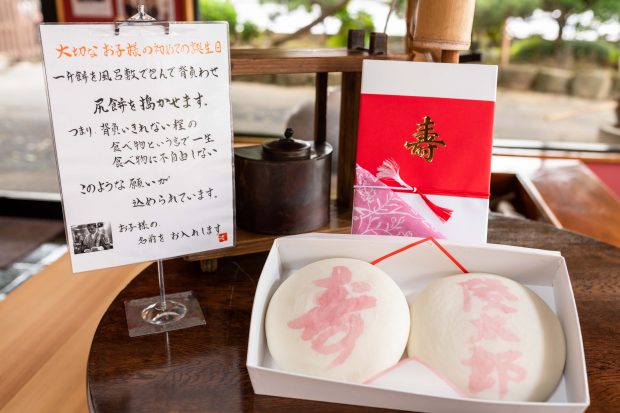 大切なお子様の初めての誕生日
一升餅を風呂敷で包んで背負わせ
尻餅を搗かせます。
つまり、背負いきれない程の
食べ物という事で一生
食べ物に不自由しない
このような願いが
込められています。
お子様の
名前をお入れします
寿
寿
太郎